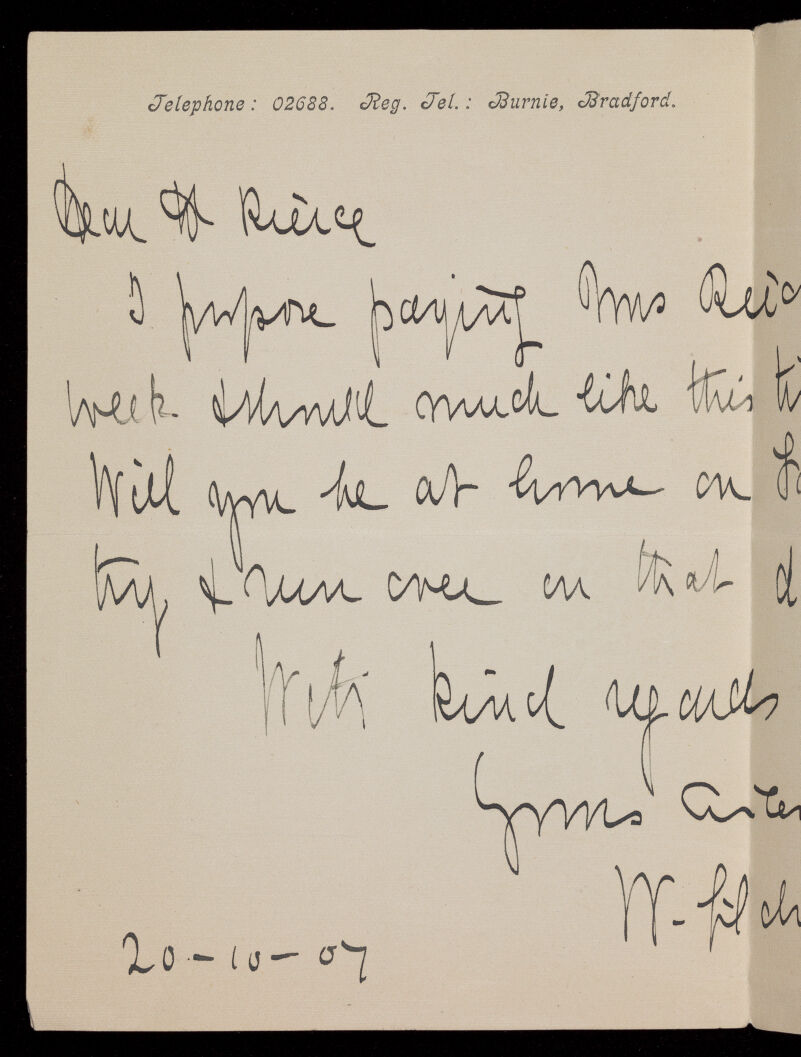 Telephone: 02688. Reg. Tel.: Burnie, Bradford.
Dear
I propose paying Mrs
week & should much like this
Will you be at home on
try & run over on that
With kind regards
Yours
W.
20-10-07